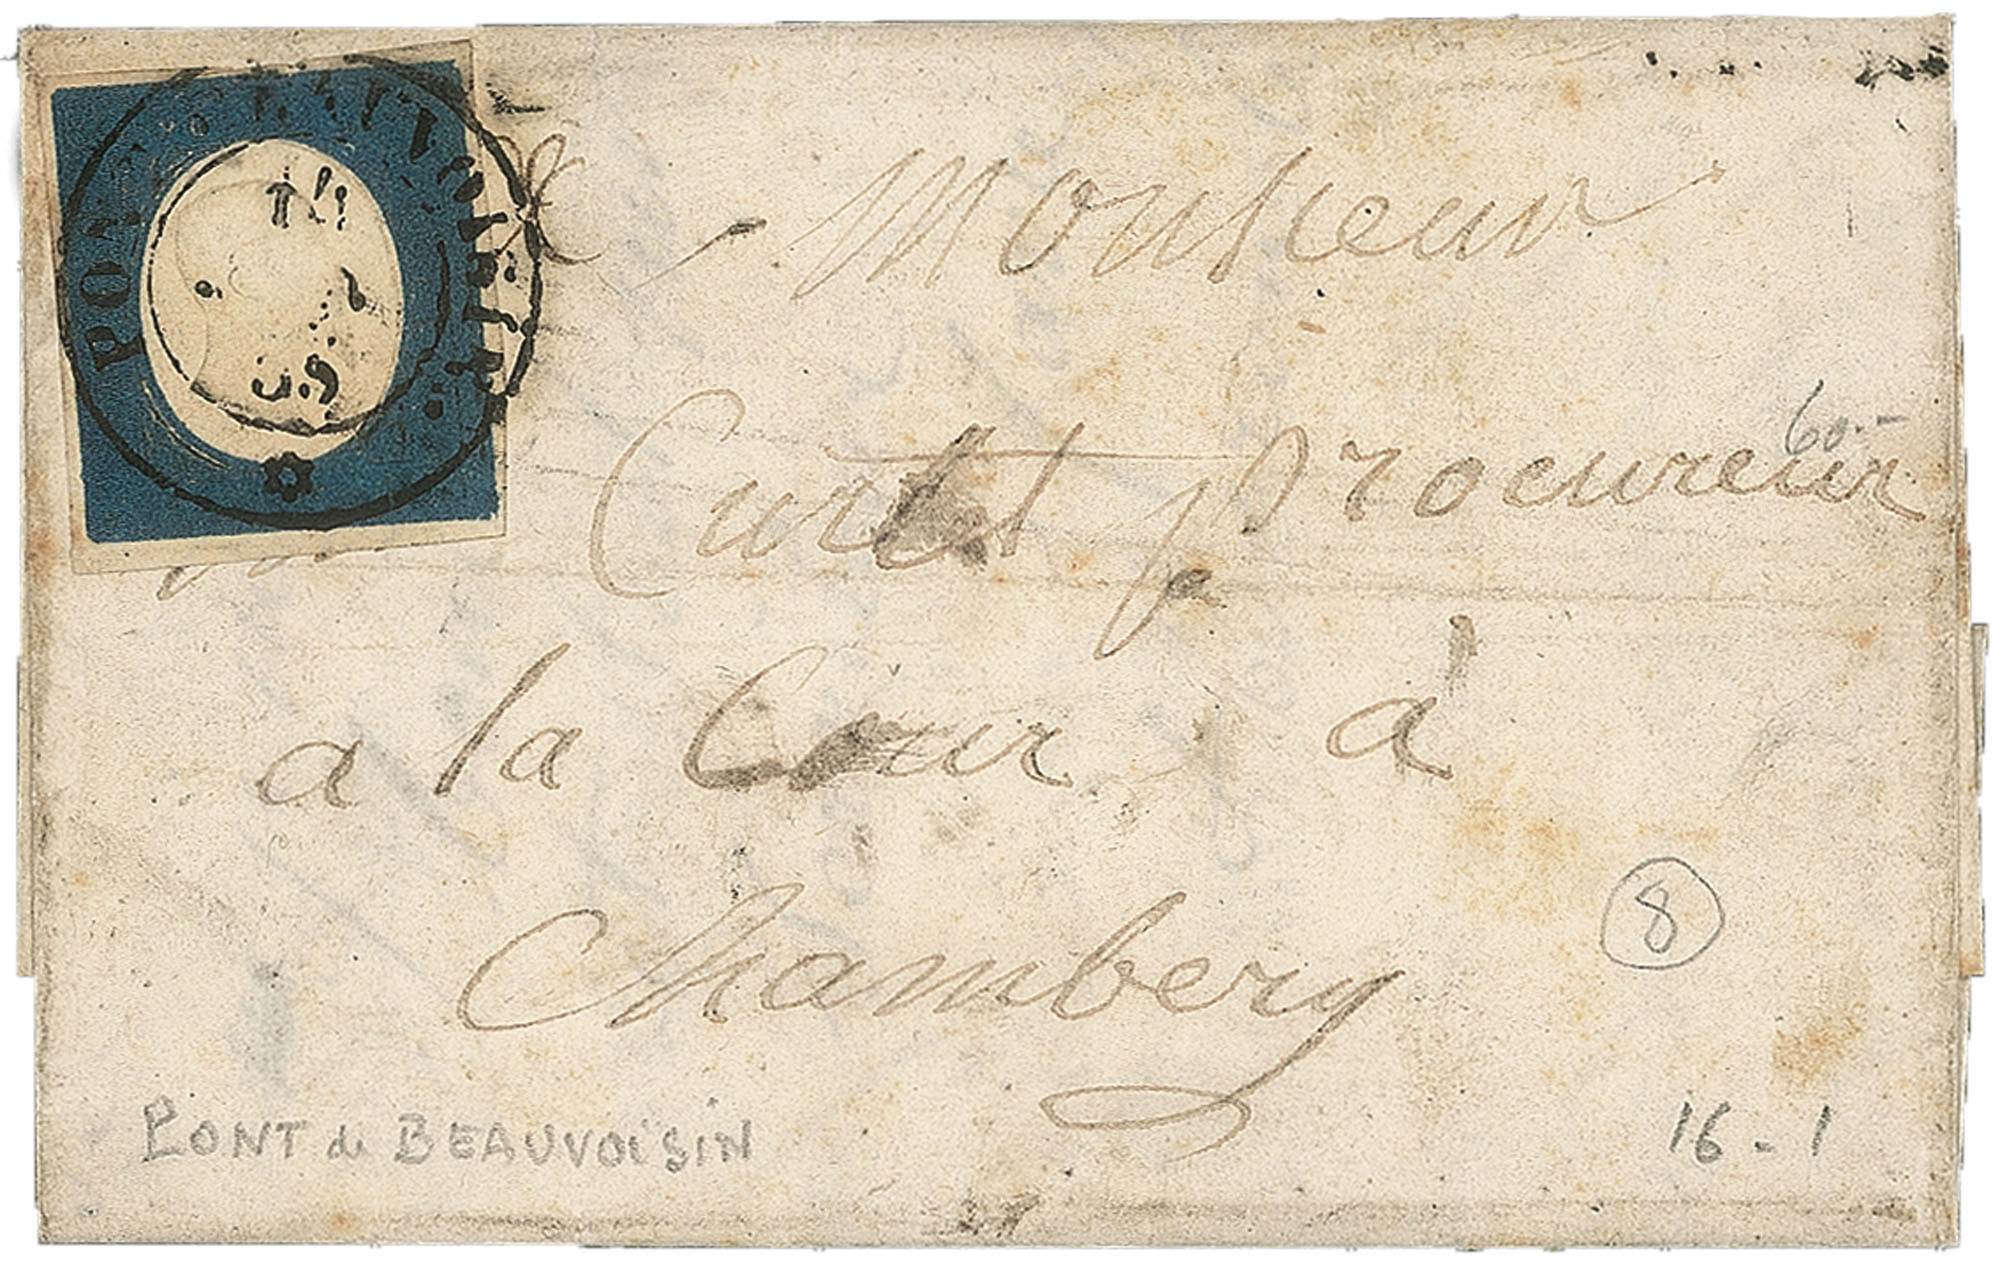 Monsieur
Curtet procureur
60.-
a la Cour à
Chambery
8
PONT de BEAUVOISIN
16 - 1